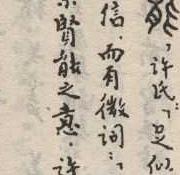 能，許氏：「足似
信，而有微詞：「
賢能之意，許